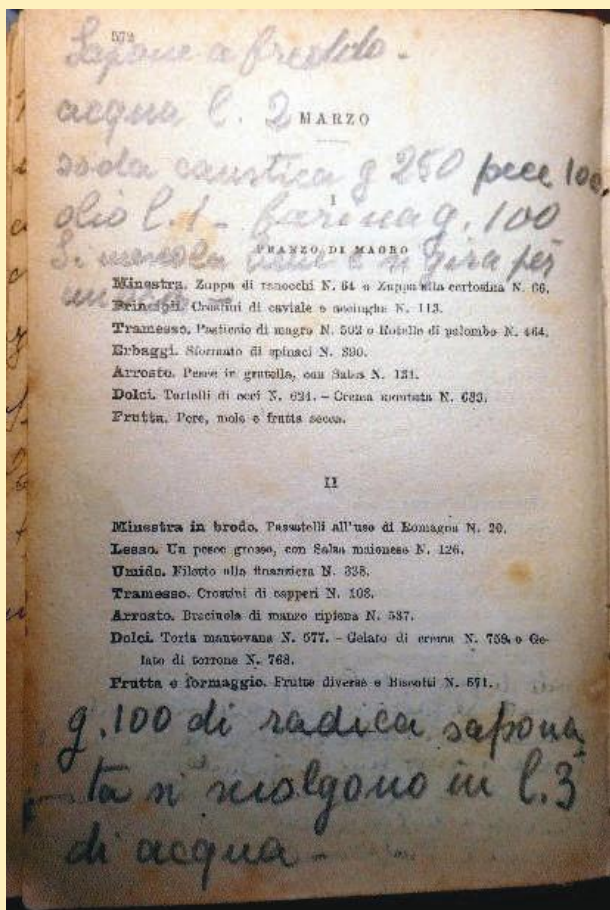 572
Sapone a freddo -
acqua l. 2
MARZO
soda caustica g 250 pece 100
I
olio l. 1 - farina g. 100
PRANZO DI MAGRO
Si mescola bene e si gira per
Minestra. Zuppa di ranocchi N. 64 o Zuppa alla certosina N. 66.
un
Principii. Crostini di caviale e acciughe N. 113.
Tramesso. Pasticcio di magro N. 502 o Rotelle di palombo N. 464.
Erbaggi. Sformato di spinaci N. 390.
Arrosto. Pesce in gratella, con Salsa N. 131.
Dolci. Tortelli di ceci N. 624. - Crema montata N. 689.
Frutta. Pere, mele e frutta secca.
II
Minestra in brodo. Passatelli all'uso di Romagna N. 20.
Lesso. Un pesce grosso, con Salsa maionese N. 126.
Umido. Filetto alla finanziera N. 338.
Tramesso. Crostini di capperi N. 108.
Arrosto. Braciuola di manzo ripiena N. 537.
Dolci. Torta mantovana N. 577. - Gelato di crema N. 759, o Ge-
lato di torrone N. 768.
Frutta e formaggio. Frutte diverse e Biscotti N. 571.
g. 100 di radica sapona
ta si sciolgono in l. 3
di acqua -